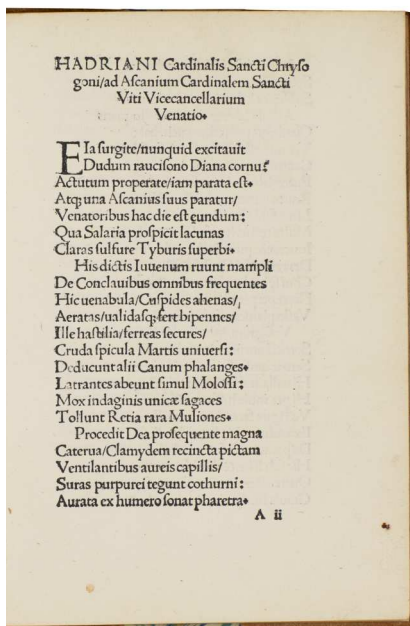 HADRIANI Cardinalis Sancti Chryſo
goni/ad Aſcanium Cardinalem Sancti
Viti Vicecancellarium
Venatio.
EIa ſurgite/nunquid excitauit
Dudum rauciſono Diana cornu?
Actutum properate/iam parata eſt.
Atq; una Aſcanius ſuus paratur/
Venatoribus hac die eſt eundum:
Qua Salaria proſpicit lacunas
Claras ſulfure Tyburis ſuperbi.
His dictis Iuuenum ruunt manipli
De Conclauibus omnibus frequentes
Hic uenabula/Cuſpides ahenas/
Aeratas/ualidaſq; fert bipennes/
Ille haſtilia/ferreas ſecures/
Cruda ſpicula Martis uniuerſi:
Deducunt alii Canum phalanges.
Latrantes abeunt ſimul Moloſſi:
Mox indaginis unicæ ſagaces
Tollunt Retia rara Muliones.
Procedit Dea proſequente magna
Caterua/Clamydem recincta pictam
Ventilantibus aureis capillis/
Suras purpurei tegunt cothurni:
Aurata ex humero ſonat pharetra.
A ii